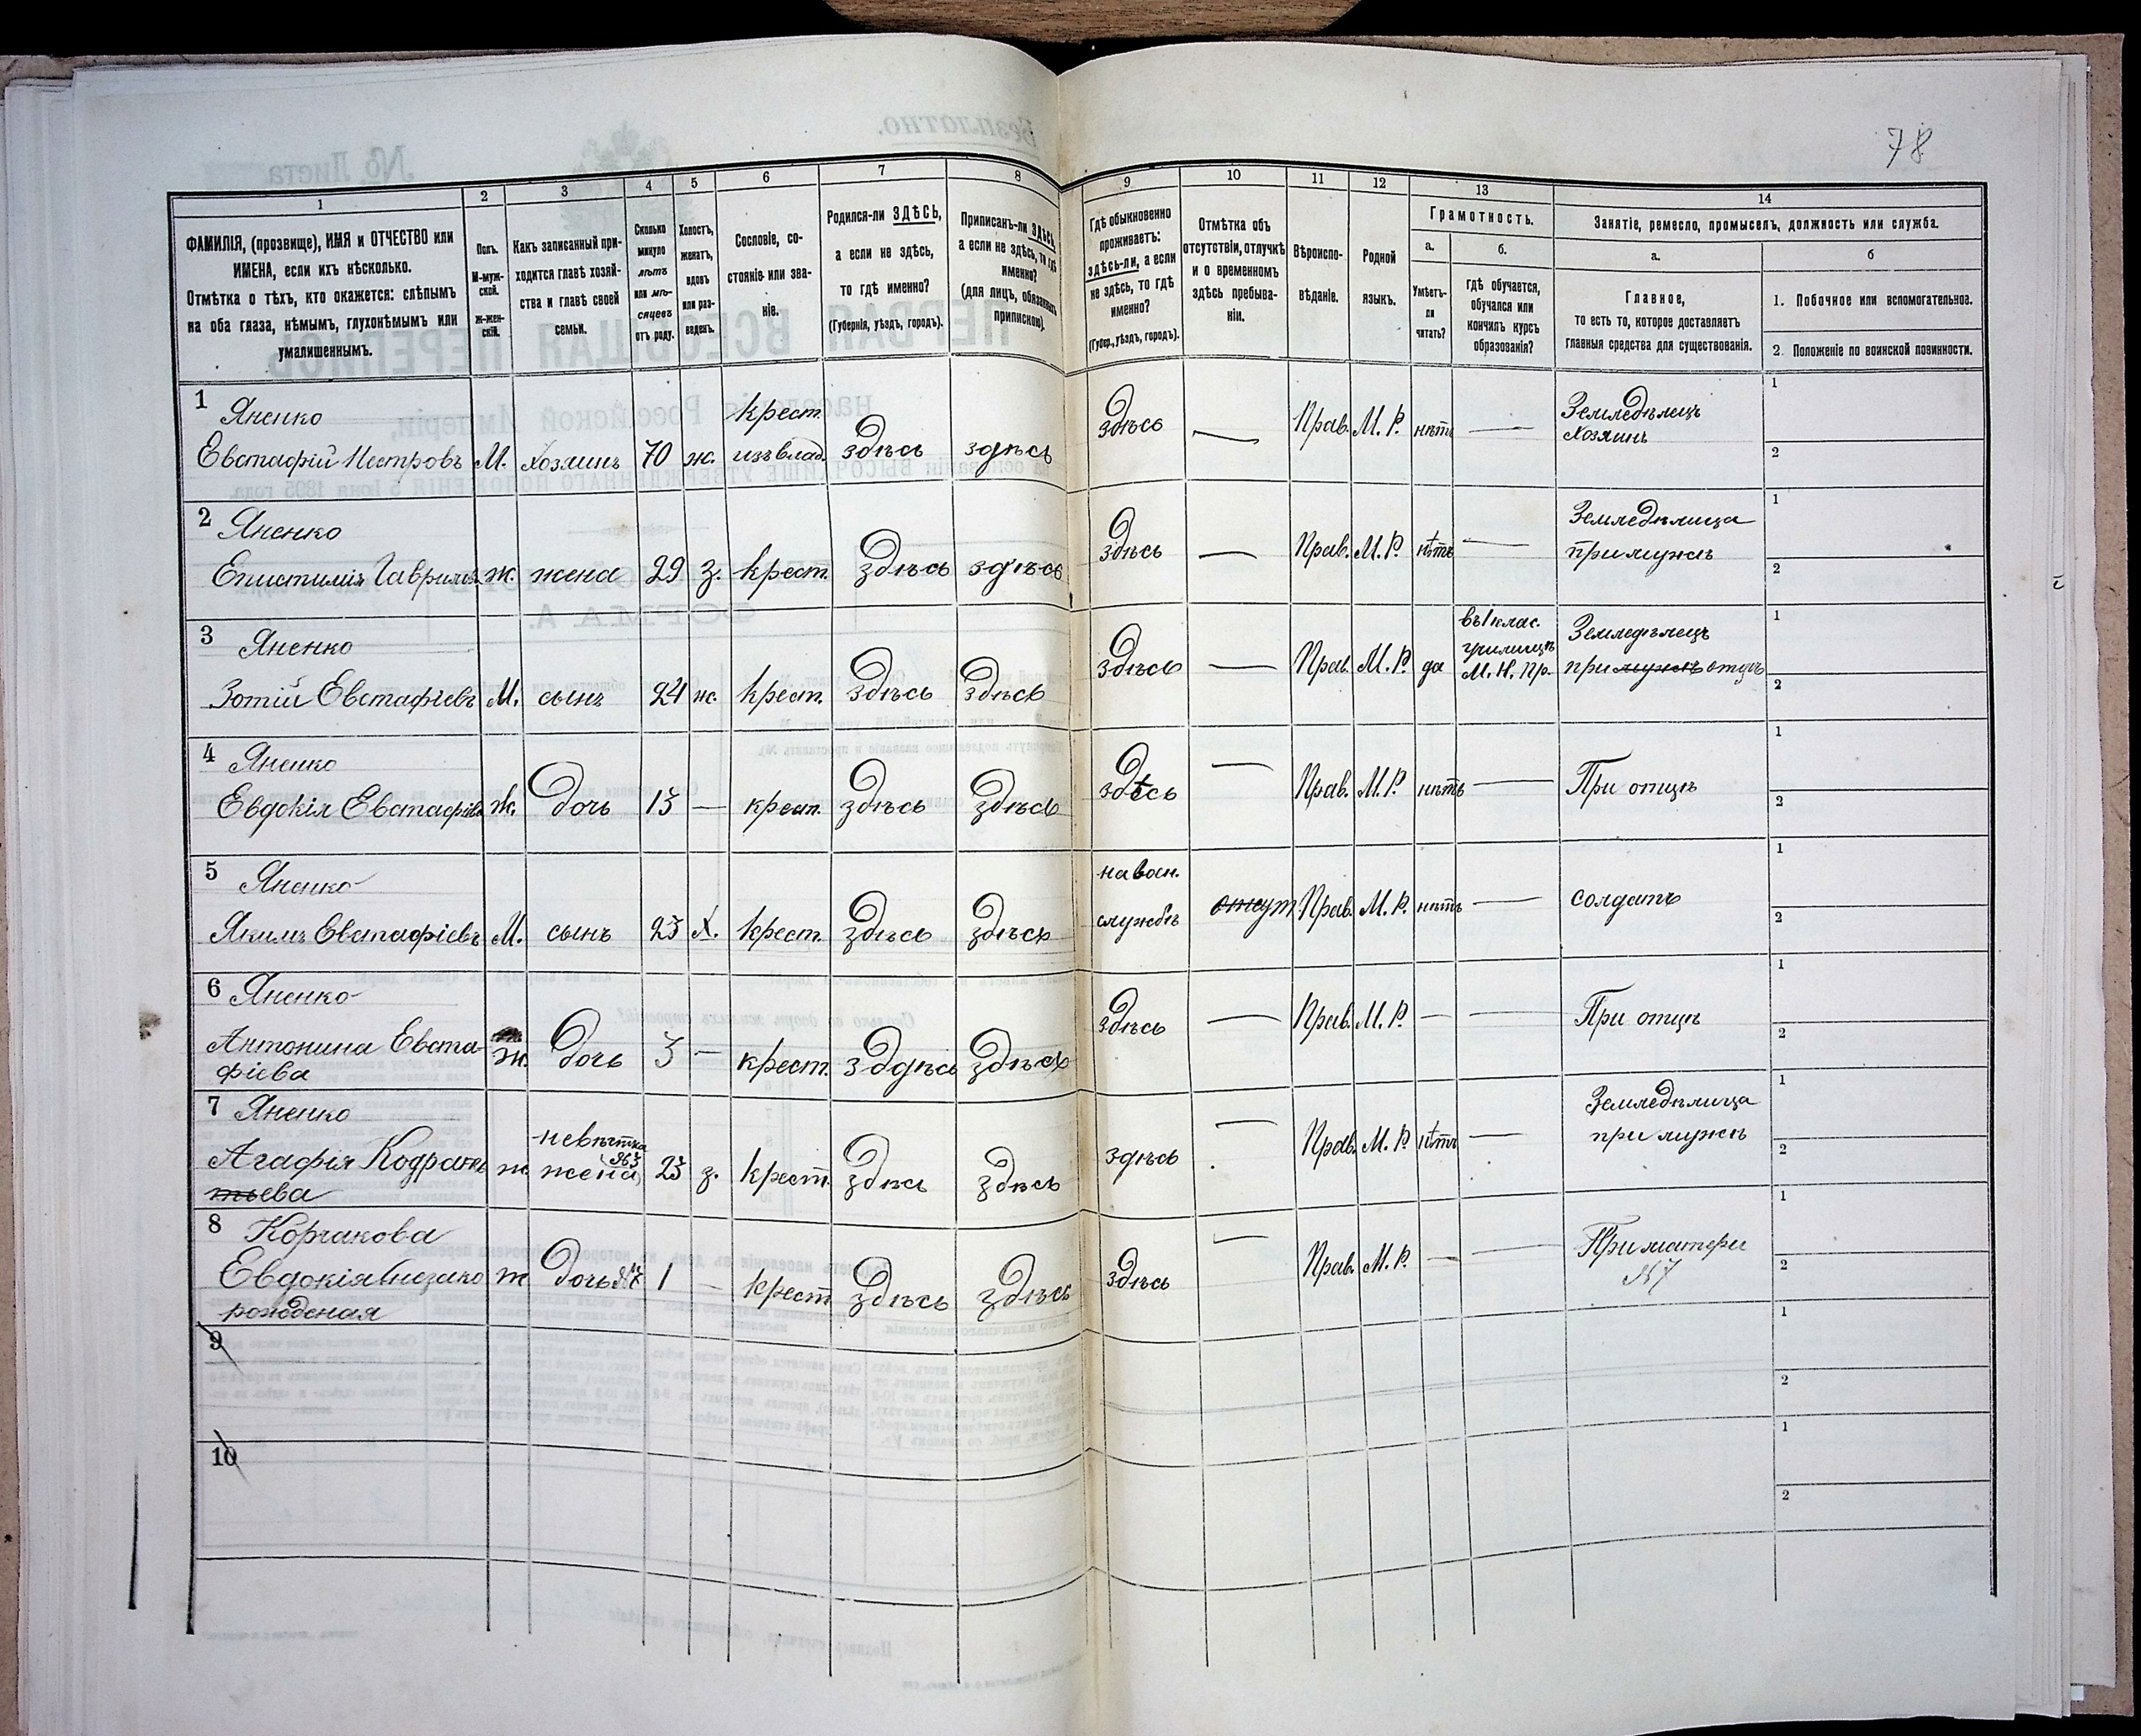 78
1 2 3 4 5 6 7 8 9 10 11 12 13 14
ФАМИЛІЯ, (прозвище), ИМЯ и ОТЧЕСТВО или
ИМЕНА, если ихъ нѣсколько.
Отмѣтка о тѣхъ, кто окажется: слѣпымъ
на оба глаза, нѣмымъ, глухонѣмымъ или
умалишеннымъ.
Полъ.
М-муж-
ской.
Ж-жен-
скій.
Какъ записанный при-
ходится главѣ хозяй-
ства и главѣ своей
семьи.
Сколько
минуло
лѣтъ
или мѣ-
сяцевъ
отъ роду.
Холостъ,
женатъ,
вдовъ
или раз-
веденъ.
Сословіе, со-
стояніе или зва-
ніе.
Родился-ли ЗДѢСЬ,
а если не здѣсь,
то гдѣ именно?
(Губернія, уѣздъ, городъ).
Приписанъ-ли ЗДѢСЬ,
а если не здѣсь, то гдѣ
именно?
(для лицъ, обязанныхъ
припискою).
Гдѣ обыкновенно
проживаетъ:
здѣсь-ли, а если
не здѣсь, то гдѣ
именно?
(Губер., уѣздъ, городъ).
Отмѣтка объ
отсутствіи, отлучкѣ
и о временномъ
здѣсь пребыва-
ніи.
Вѣроиспо-
вѣданіе.
Родной
языкъ.
Грамотность.
а.
Умѣетъ-
ли
читать?
б.
гдѣ обучается,
обучался или
кончилъ курсъ
образованія?
Занятіе, ремесло, промыселъ, должность или служба.
а.
Главное,
то есть то, которое доставляетъ
главныя средства для существованія.
б
1. Побочное или вспомогательное.
2. Положеніе по воинской повинности.
1 Яненко крест. здѣсь — Прав. М. Р. нѣтъ — Земледѣлецъ 1
Евстафій Нестровъ М. Хозяинъ 70 ж. изъ влад. здѣсь здѣсь Хозяинъ 2
2 Яненко здѣсь — Прав. М. Р. нѣтъ — Земледѣлица 1
Епистимія Гаврилов ж. жена 29 з. крест. здѣсь здѣсь при мужѣ 2
3 Яненко здѣсь — Прав. М. Р. да въ 1 клас. Земледѣлецъ 1
училищѣ
Зотій Евстафіевъ М. сынъ 24 ж. крест. здѣсь здѣсь М. Н. Пр. при мужѣ отцѣ 2
4 Яненко здѣсь — Прав. М. Р. нѣтъ — При отцѣ 1
Евдокія Евстафіева Ж. дочь 13 — крест. здѣсь здѣсь 2
5 Яненко на воен. отсут. Прав. М. Р. нѣтъ — солдатъ 1
Якимъ Евстафіевъ М. сынъ 23 Х. крест. здѣсь здѣсь службѣ 2
6 Яненко здѣсь — Прав. М. Р. — — При отцѣ 1
Антонина Евста- ж. дочь 3 — крест. здѣсь здѣсь 2
фіева
7 Яненко невѣстка — Прав. М. Р. нѣтъ — Земледѣлица 1
Агафія Кодрать ж жена №3 23 з. крест. здѣсь здѣсь здѣсь при мужѣ 2
тьева
8 Корчакова — Прав. М. Р. — — При матери 1
Евдокія Незако ж дочь №7 1 — крест здѣсь здѣсь здѣсь №7 2
рожденая
9 1
2
10 1
2